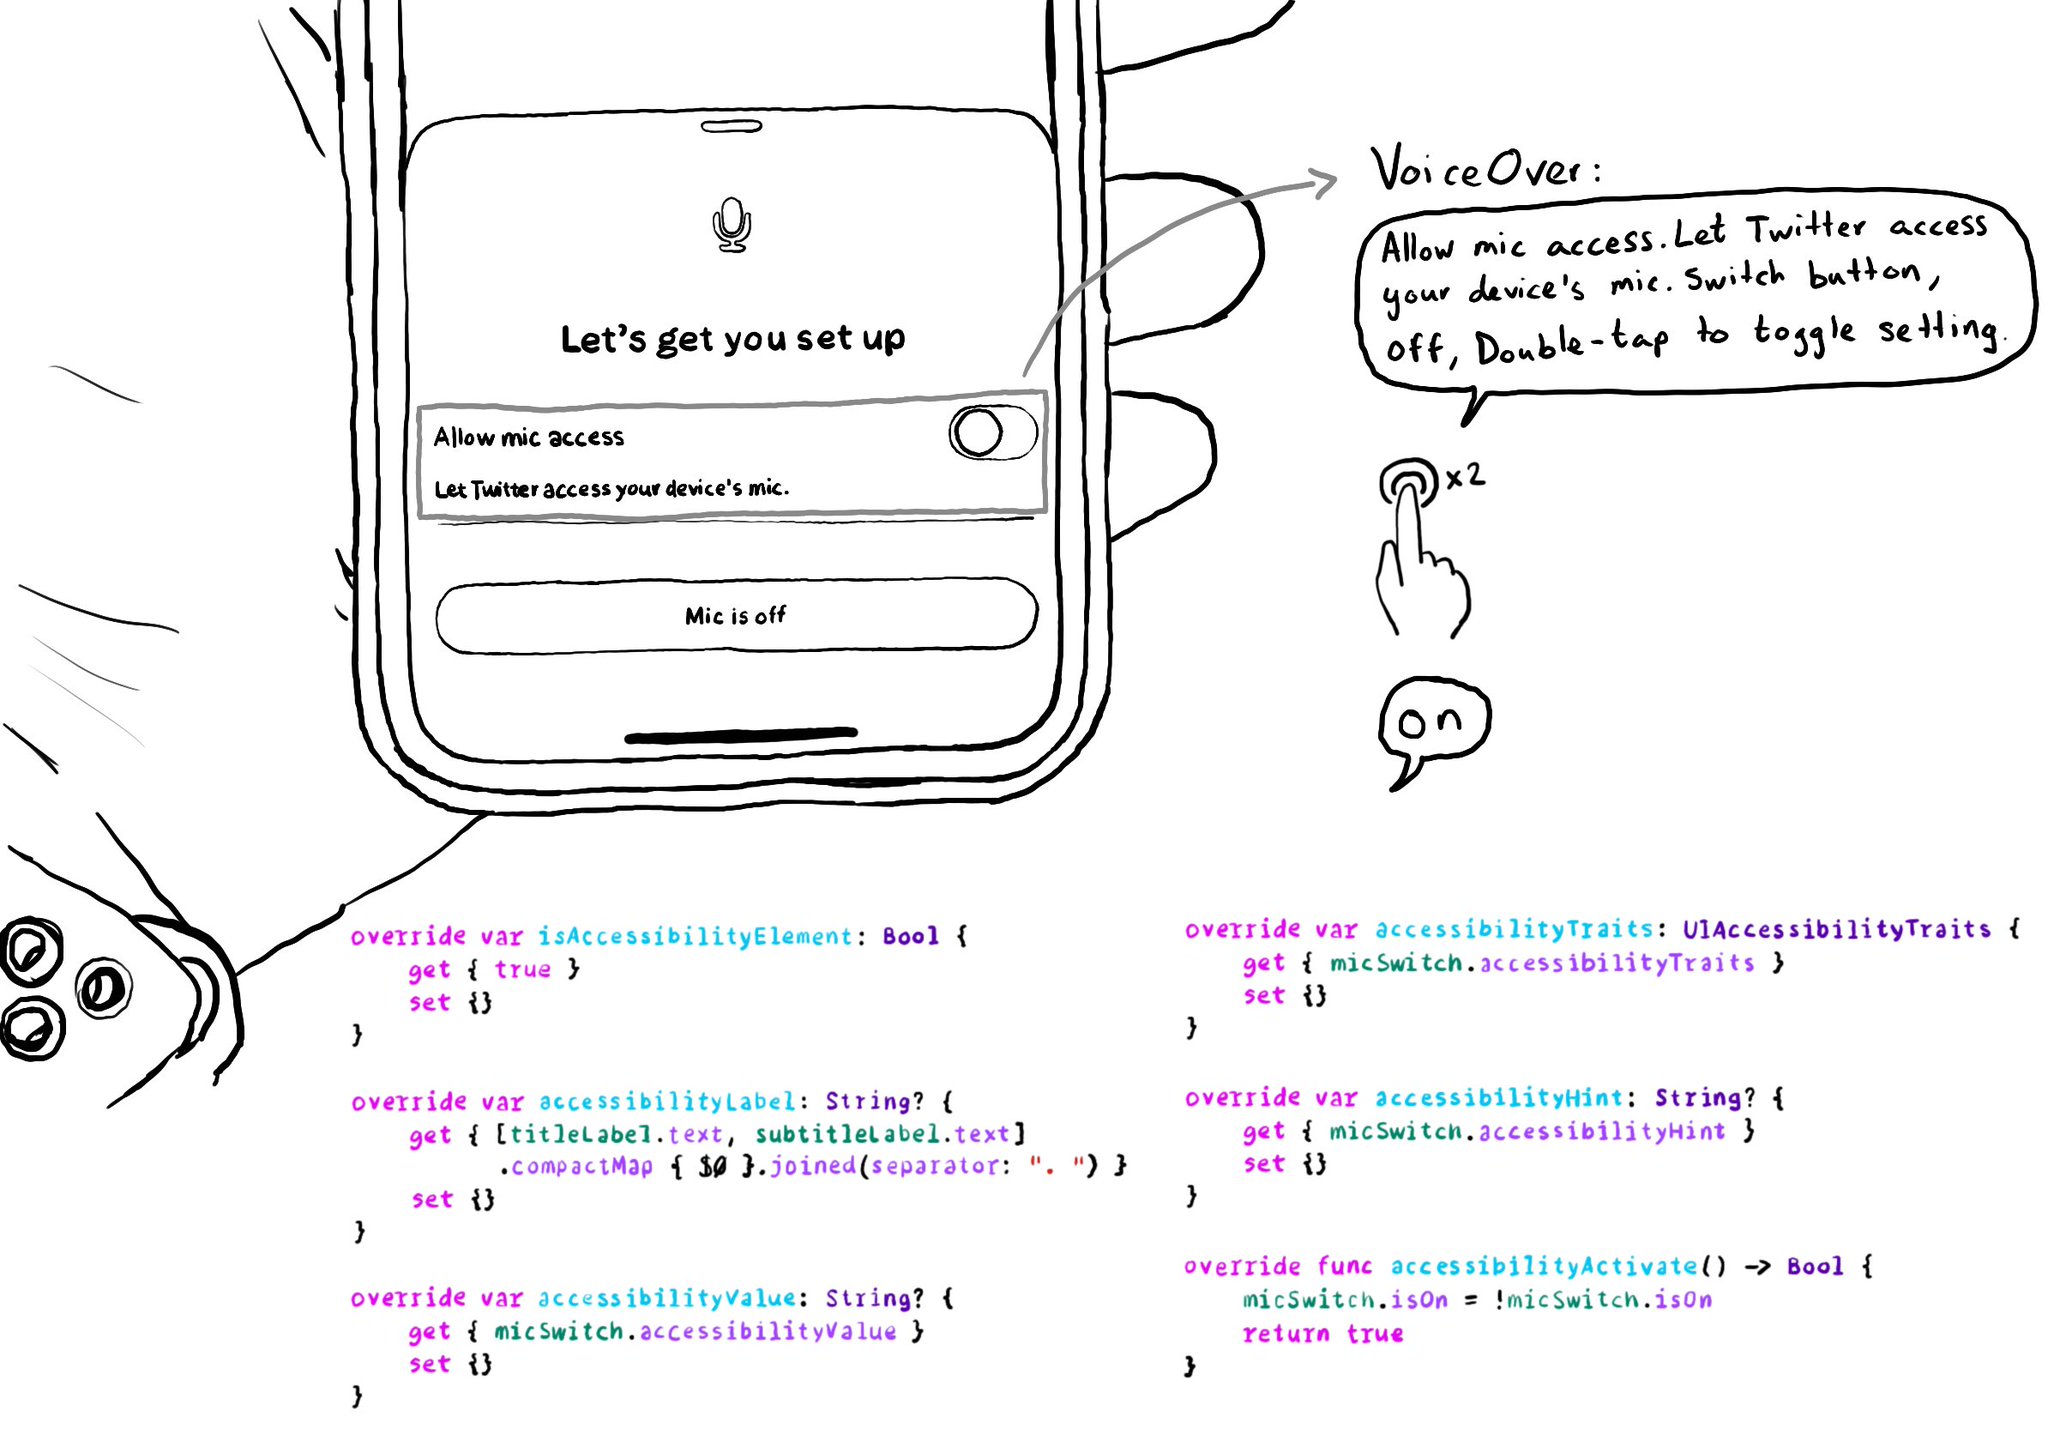 Let's get you set up
Allow mic access
Let Twitter access your device's mic.
Mic is off
VoiceOver:
Allow mic access. Let Twitter access
your device's mic. Switch button,
off, Double-tap to toggle setting.
x2
on
override var isAccessibilityElement: Bool {
get { true }
set {}
}
override var accessibilityLabel: String? {
get { [titleLabel.text, subtitleLabel.text]
.compactMap { $0 }.joined(separator: ". ") }
set {}
}
override var accessibilityValue: String? {
get { micSwitch.accessibilityValue }
set {}
}
override var accessibilityTraits: UIAccessibilityTraits {
get { micSwitch.accessibilityTraits }
set {}
}
override var accessibilityHint: String? {
get { micSwitch.accessibilityHint }
set {}
}
override func accessibilityActivate() -> Bool {
micSwitch.isOn = !micSwitch.isOn
return true
}